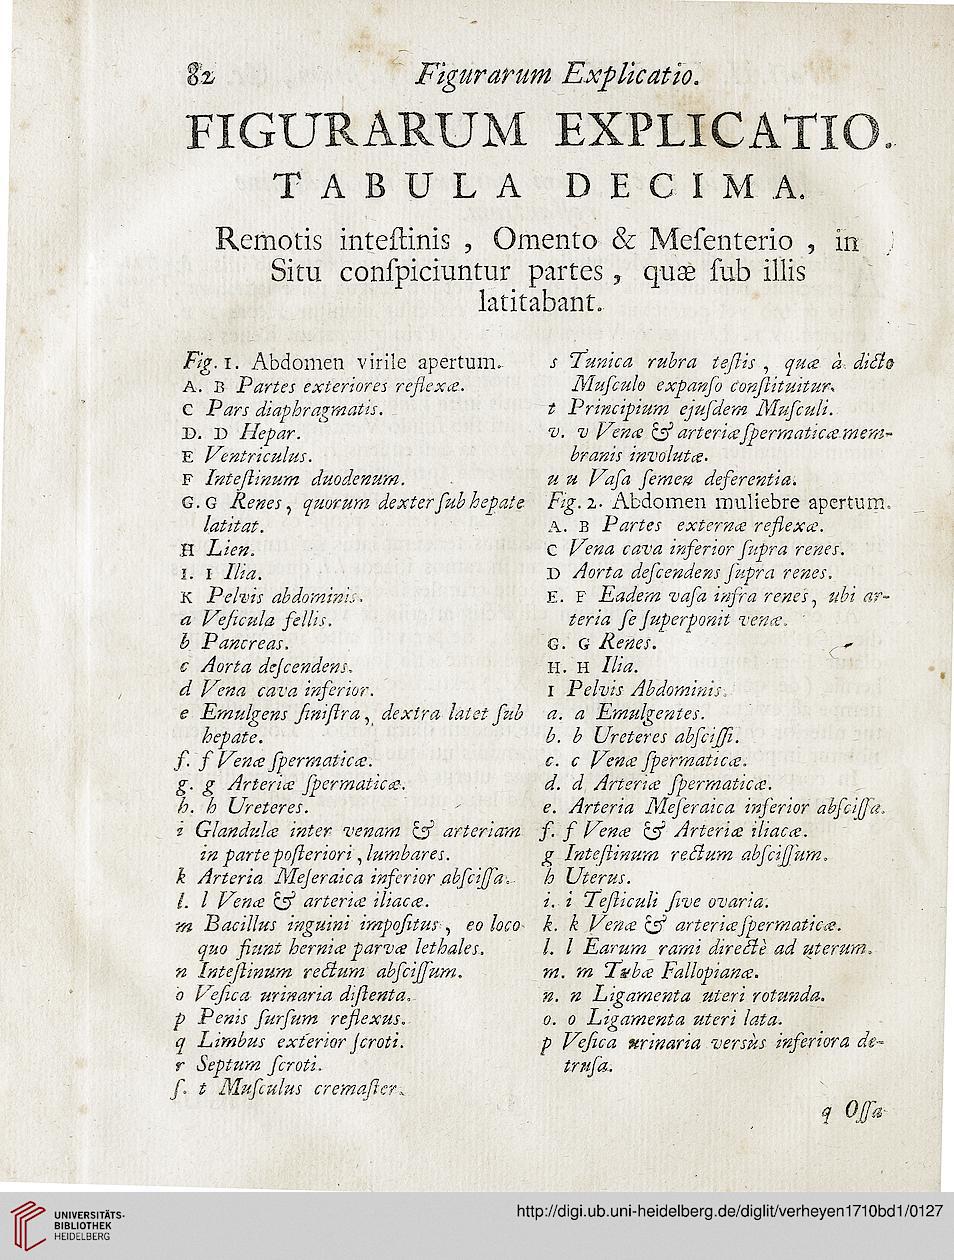 82 Figurarum Explicatio.
FIGURARUM EXPLICATIO.
TABULA DECIMA.
Remotis inteſtinis , Omento & Meſenterio , in
Situ conſpiciuntur partes , quæ ſub illis
latitabant.
Fig. 1. Abdomen virile apertum.
A. B Partes exteriores reflexæ.
C Pars diaphragmatis.
D. D Hepar.
E Ventriculus.
F Inteſtinum duodenum.
G. G Renes, quorum dexter ſub hepate
latitat.
H Lien.
I. I Ilia.
K Pelvis abdominis.
a Veſicula fellis.
b Pancreas.
c Aorta deſcendens.
d Vena cava inferior.
e Emulgens ſiniſtra, dextra latet ſub
hepate.
f. f Venæ ſpermaticæ.
g. g Arteriæ ſpermaticæ.
h. h Ureteres.
i Glandulæ inter venam & arteriam
in parte poſteriori, lumbares.
k Arteria Meſeraica inferior abſciſſa.
l. l Venæ & arteriæ iliacæ.
m Bacillus inguini impoſitus, eo loco
quo fiunt herniæ parvæ lethales.
n Inteſtinum rectum abſciſſum.
o Veſica urinaria diſtenta.
p Penis ſurſum reflexus.
q Limbus exterior ſcroti.
r Septum ſcroti.
ſ. t Muſculus cremaſter.
s Tunica rubra teſtis, quæ à dicto
Muſculo expanſo conſtituitur.
t Principium ejuſdem Muſculi.
v. v Venæ & arteriæ ſpermaticæ mem-
branis involutæ.
u u Vaſa ſemen deferentia.
Fig. 2. Abdomen muliebre apertum.
A. B Partes externæ reflexæ.
C Vena cava inferior ſupra renes.
D Aorta deſcendens ſupra renes.
E. F Eadem vaſa infra renes, ubi ar-
teria ſe ſuperponit venæ.
G. G Renes.
H. H Ilia.
I Pelvis Abdominis.
a. a Emulgentes.
b. b Ureteres abſciſſi.
c. c Venæ ſpermaticæ.
d. d Arteriæ ſpermaticæ.
e. Arteria Meſeraica inferior abſciſſa.
f. f Venæ & Arteriæ iliacæ.
g Inteſtinum rectum abſciſſum.
h Uterus.
i. i Teſticuli ſive ovaria.
k. k Venæ & arteriæ ſpermaticæ.
l. l Earum rami directè ad uterum.
m. m Tubæ Fallopianæ.
n. n Ligamenta uteri rotunda.
o. o Ligamenta uteri lata.
p Veſica urinaria versùs inferiora de-
truſa.
q Oſſa
UNIVERSITÄTS-
BIBLIOTHEK
HEIDELBERG
http://digi.ub.uni-heidelberg.de/diglit/verheyen1710bd1/0127